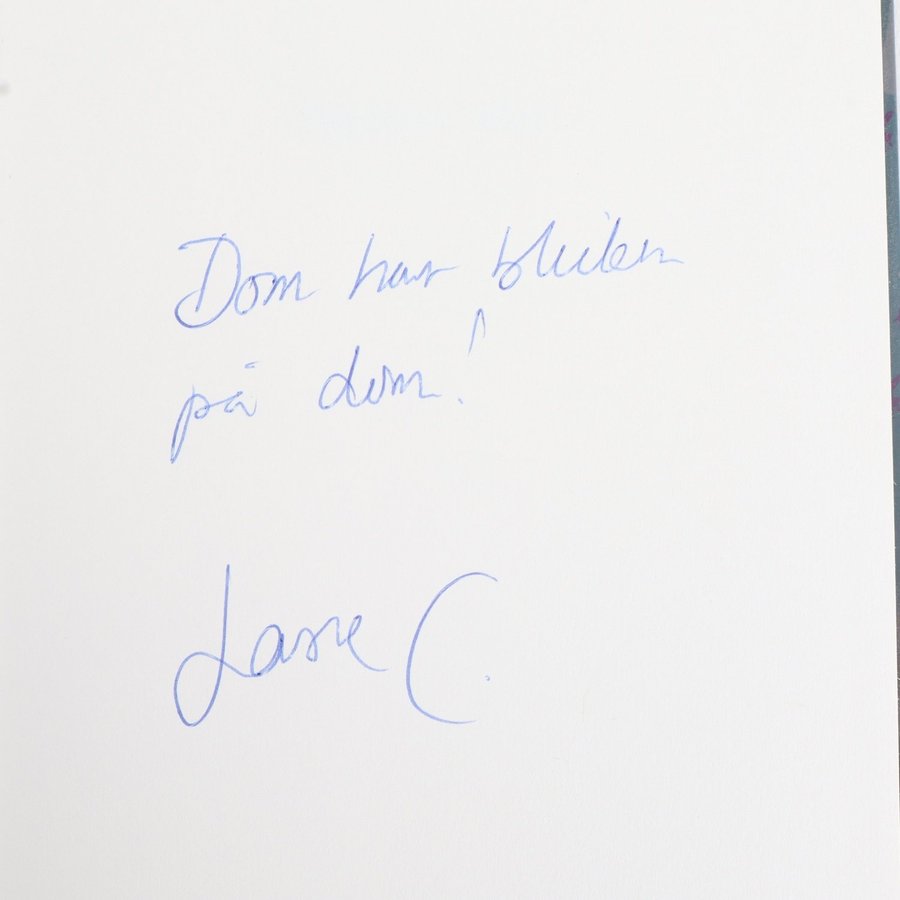 Dom har bliken
på dom!
Lasse C.